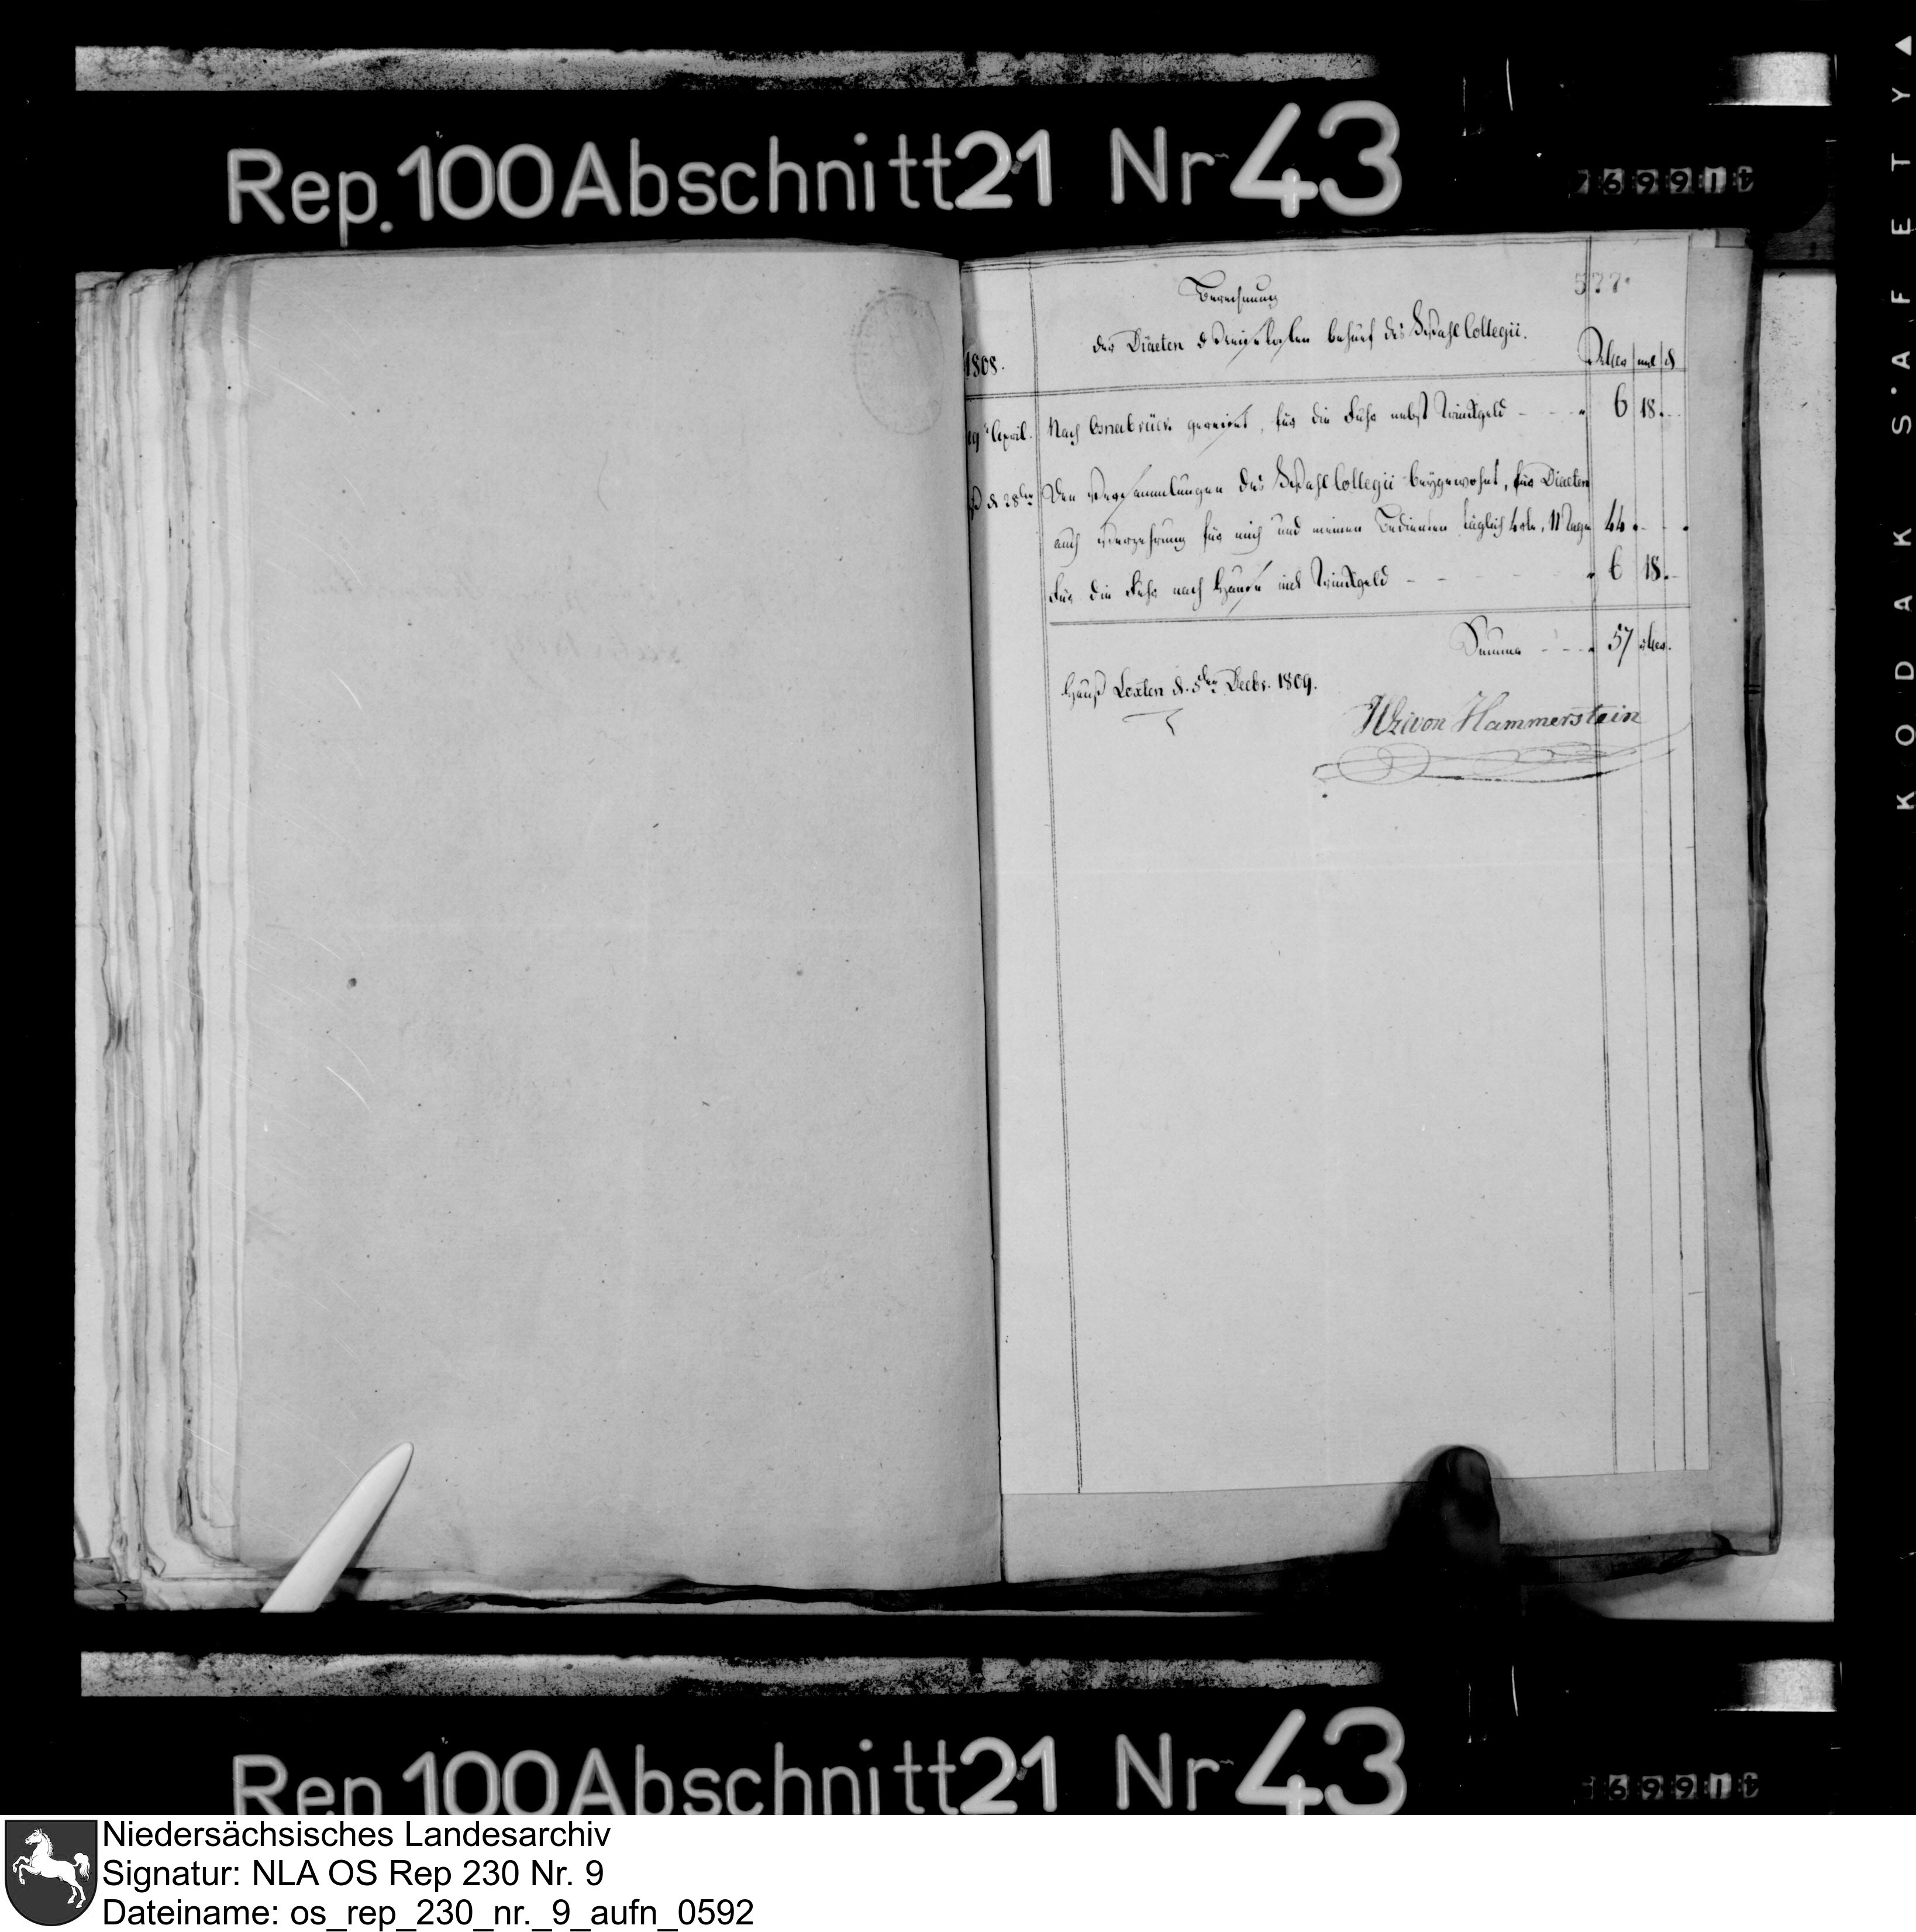 Rep. 100 Abschnitt 21 Nr 43
577.
Berechnung
der Diaeten & Reisekosten behuf des Wahl Collegii.
1808.
Rthlr mgl &
19t April. Nach Osnabrück gereiset, für die Fuhr nebst Trinkgeld - - - " 6 18.
d 28ten Den Versammlungen des Wahl Collegii beygewohnt, für Diaeten
auch Verzehrung für mich und meinen Bedienten täglich 4 rtl, 11 Tage 44.
Für die Fuhr nach Hause incl Trinkgeld - - - " 6 18.
Summa - - - 57 rthlr.
Hauß Loxten d. 5ten Decbr. 1809.
von Hammerstein
KODAK SAFETY
Rep. 100 Abschnitt 21 Nr 43
Niedersächsisches Landesarchiv
Signatur: NLA OS Rep 230 Nr. 9
Dateiname: os_rep_230_nr._9_aufn_0592